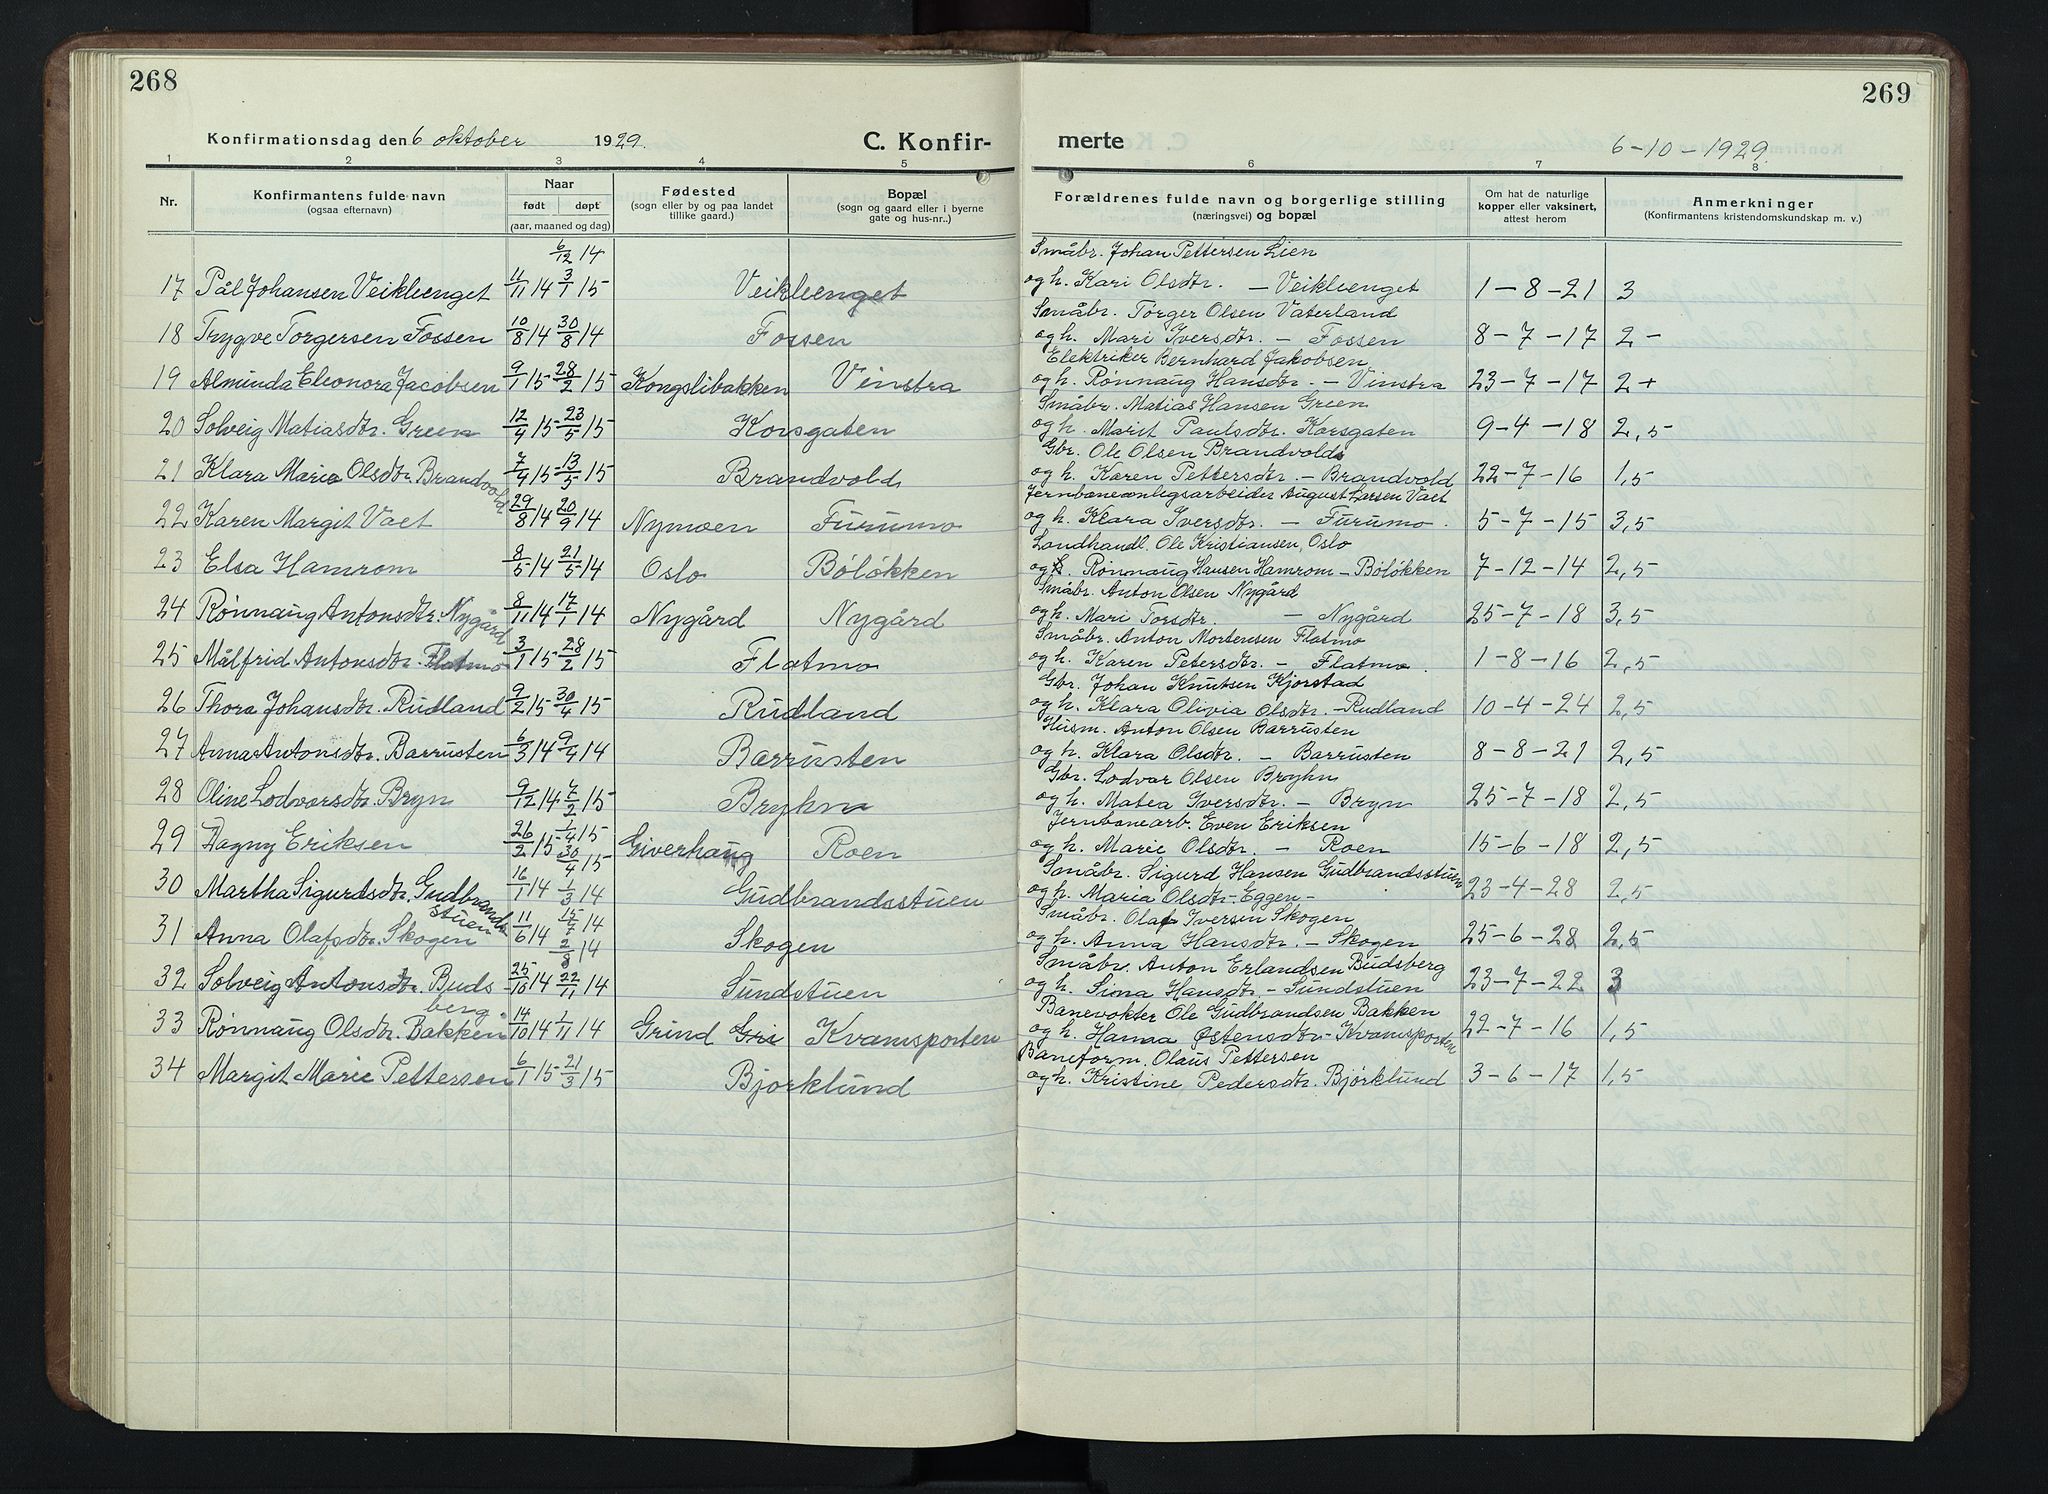 268
269
Konfirmationsdag den 6 oktober 1929.
C. Konfir-
merte
6-10-1929.
1 2 3 4 5 6 7 8
Nr.
Konfirmantens fulde navn
(ogsaa efternavn)
Naar
født døpt
(aar, maaned og dag)
Fødested
(sogn eller by og paa landet
tillike gaard.)
Bopæl
(sogn og gaard eller i byerne
gate og hus-nr..)
Forældrenes fulde navn og borgerlige stilling
(næringsvei) og bopæl
Om hat de naturlige
kopper eller vaksinert,
attest herom
Anmerkninger
(Konfirmantens kristendomskundskap m. v.)
6/12 14 Småbr. Johan Pettersen Lien
17 Pål Johansen Veikleenget 11/11 14 3/1 15 Veikleenget og h. Kari Olsdtr. – Veikleenget 1-8-21 3
Småbr. Torger Olsen Vaterland
18 Trygve Torgersen Fossen 10/8 14 30/8 14 Fossen og h. Mari Iversdtr. – Fossen 8-7-17 2-
Elektriker Bernhard Jakobsen
19 Alminda Eleonora Jacobsen 9/1 15 28/2 15 Kongslibakken Vinstra og h. Rønnaug Hansdtr. – Vinstra 23-7-17 2+
Småbr. Matias Hansen Green
20 Solveig Matiasdtr. Green 12/4 15 23/5 15 Korsgaten og h. Marit Paulsdtr. Korsgaten 9-4-18 2,5
Gbr. Ole Olsen Brandvold
21 Klara Marie Olsdtr. Brandvold 7/4 15 13/5 15 Brandvold og h. Karen Pettersdtr. – Brandvold 22-7-16 1,5
Jernbaneanlegsarbeider August Larsen Vaet
22 Karen Margit Vaet 29/8 14 20/9 14 Nymoen Furumo og h. Klara Iversdtr. – Furumo. 5-7-15 3,5
Landhandl. Ole Kristiansen, Oslo
23 Elsa Hamrom 8/5 14 21/5 14 Oslo Böløkken og Rønnaug Hansen Hamrom – Böløkken 7-12-14 2,5
Småbr. Anton Olsen Nygård
24 Rønnaug Antonsdtr. Nygård 8/11 14 17/1 14 Nygård Nygård og h. Mari Torsdtr. – Nygård 25-7-18 3,5
Småbr. Anton Mortensen Flatmo
25 Målfrid Antonsdtr. Flatmo 3/1 15 28/2 15 Flatmo og h. Karen Petersdtr. – Flatmo. 1-8-16 2,5
Gbr. Johan Knutsen Kjorstad
26 Thora Johansdtr. Rudland 9/2 15 30/4 15 Rudland og h. Klara Olivia Olsdtr. – Rudland 10-4-24 2,5
Husm. Anton Olsen Barrusten
27 Anna Antonsdtr. Barrusten 6/3 14 9/4 14 Barrusten og h. Klara Olsdtr. – Barrusten 8-8-21 2,5
Gbr. Lodvar Olsen Bryhn
28 Oline Lodvarsdtr. Bryn 9/12 14 7/2 15 Bryhn og h. Matea Iversdtr. – Bryn 25-7-18 2,5
Jernbanearb. Even Eriksen
29 Dagny Eriksen 26/2 15 1/4 15 30/4 15 Giverhaug Roen og h. Marie Olsdtr. – Roen 15-6-18 2,5
Småbr. Sigurd Hansen Gudbrandsstuen
30 Martha Sigurdsdtr. Gudbrandsstuen 16/1 14 1/3 14 Gudbrandsstuen og h. Maria Olsdtr. – Eggen – 23-4-28 2,5
Småbr. Olaf Iversen Skogen
31 Anna Olafsdtr. Skogen 11/6 14 15/7 14 2/8 14 Skogen og h. Anna Hansdtr. – Skogen 25-6-28 2,5
Småbr. Anton Erlandsen Budsberg
32 Solveig Antonsdtr. Budsberg 25/10 14 22/11 14 Sundstuen og h. Sina Hansdtr. – Sundstuen 23-7-22 3
Banevokter Ole Gudbrandsen Bakken
33 Rønnaug Olsdtr. Bakken 14/10 14 1/11 14 Grind Gri Kvamsporten og h. Hanna Østensdtr. – Kvamsporten 22-7-16 1,5
Baneform. Olaus Pettersen
34 Margit Marie Pettersen 6/1 15 21/3 15 Bjørklund og h. Kristine Pedersdtr. Bjørklund 3-6-17 1,5